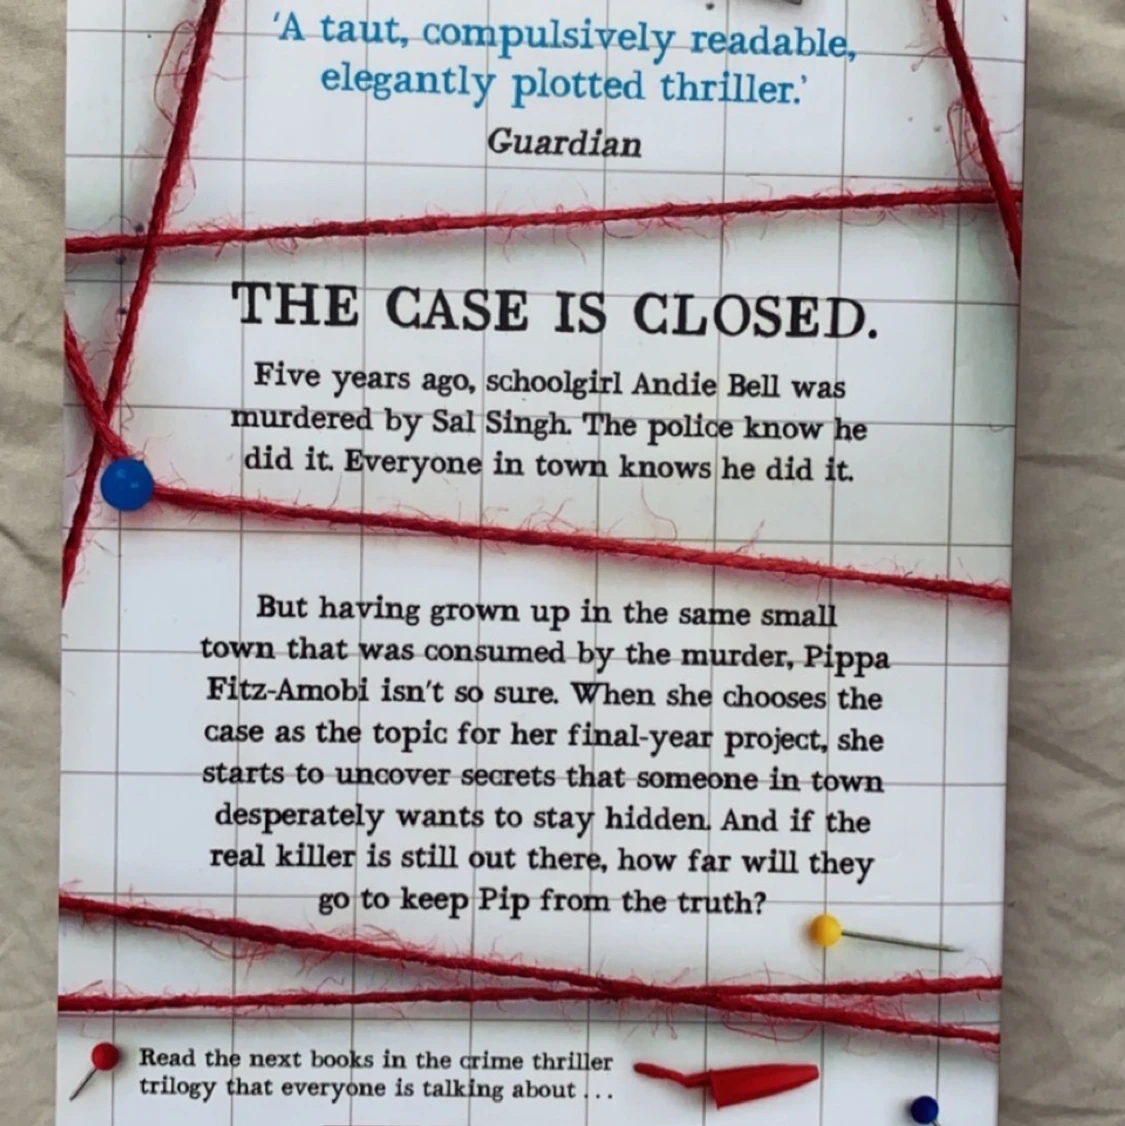 ‘A taut, compulsively readable,
elegantly plotted thriller.’
Guardian
THE CASE IS CLOSED.
Five years ago, schoolgirl Andie Bell was
murdered by Sal Singh. The police know he
did it. Everyone in town knows he did it.
But having grown up in the same small
town that was consumed by the murder, Pippa
Fitz-Amobi isn't so sure. When she chooses the
case as the topic for her final-year project, she
starts to uncover secrets that someone in town
desperately wants to stay hidden. And if the
real killer is still out there, how far will they
go to keep Pip from the truth?
Read the next books in the crime thriller
trilogy that everyone is talking about ...